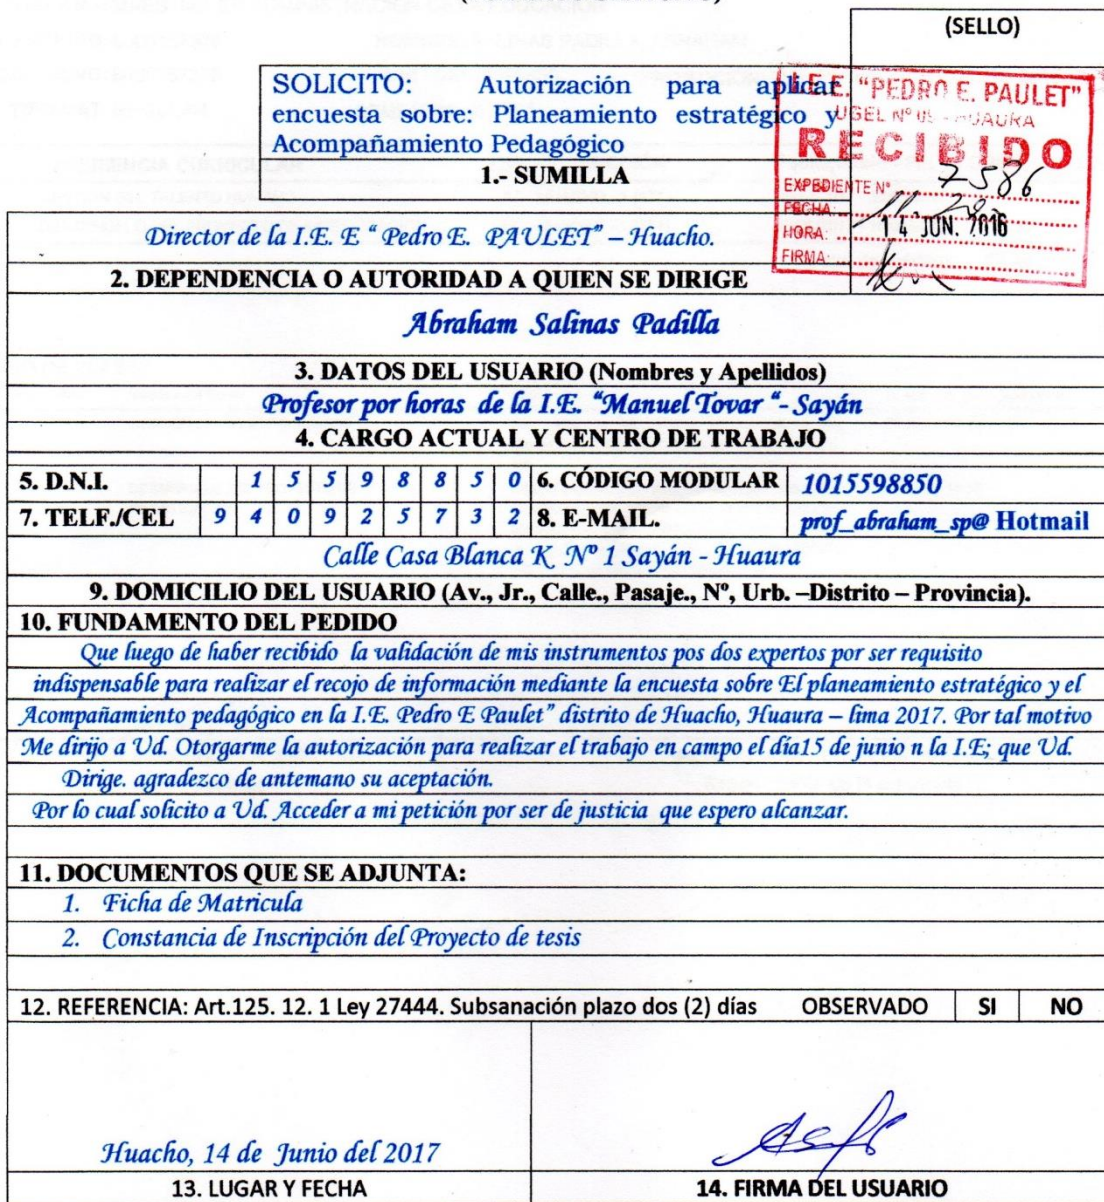 (SELLO)
SOLICITO: Autorización para aplicar
encuesta sobre: Planeamiento estratégico y
Acompañamiento Pedagógico
1.- SUMILLA
I.E.E. "PEDRO E. PAULET"
UGEL Nº 09 - HUAURA
RECIBIDO
EXPEDIENTE Nº 7586
FECHA: 14 JUN.
HORA:
FIRMA:
Director de la I.E. E " Pedro E. PAULET" – Huacho.
2. DEPENDENCIA O AUTORIDAD A QUIEN SE DIRIGE
Abraham Salinas Padilla
3. DATOS DEL USUARIO (Nombres y Apellidos)
Profesor por horas de la I.E. "Manuel Tovar "- Sayán
4. CARGO ACTUAL Y CENTRO DE TRABAJO
5. D.N.I. 1 5 5 9 8 8 5 0 6. CÓDIGO MODULAR 1015598850
7. TELF./CEL 9 4 0 9 2 5 7 3 2 8. E-MAIL. prof_abraham_sp@ Hotmail
Calle Casa Blanca K Nº 1 Sayán - Huaura
9. DOMICILIO DEL USUARIO (Av., Jr., Calle., Pasaje., Nº, Urb. –Distrito – Provincia).
10. FUNDAMENTO DEL PEDIDO
Que luego de haber recibido la validación de mis instrumentos pos dos expertos por ser requisito
indispensable para realizar el recojo de información mediante la encuesta sobre El planeamiento estratégico y el
Acompañamiento pedagógico en la I.E. Pedro E Paulet" distrito de Huacho, Huaura – lima 2017. Por tal motivo
Me dirijo a Ud. Otorgarme la autorización para realizar el trabajo en campo el día15 de junio n la I.E; que Ud.
Dirige. agradezco de antemano su aceptación.
Por lo cual solicito a Ud. Acceder a mi petición por ser de justicia que espero alcanzar.
11. DOCUMENTOS QUE SE ADJUNTA:
1. Ficha de Matricula
2. Constancia de Inscripción del Proyecto de tesis
12. REFERENCIA: Art.125. 12. 1 Ley 27444. Subsanación plazo dos (2) días OBSERVADO SI NO
Huacho, 14 de Junio del 2017
13. LUGAR Y FECHA
14. FIRMA DEL USUARIO